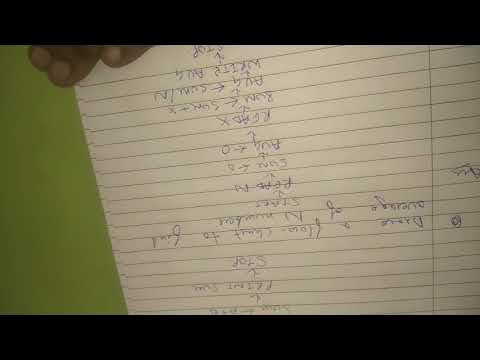 SUM ← A+B
↓
PRINT SUM
↓
STOP
Q Draw a flow-chart to find
average of N number
Ans START
↓
READ N
↓
SUM ← 0
↓
AVG ← 0
↓
READ X
↓
SUM ← SUM + X
↓
AVG ← SUM/N
↓
WRITE AVG
↓
STOP